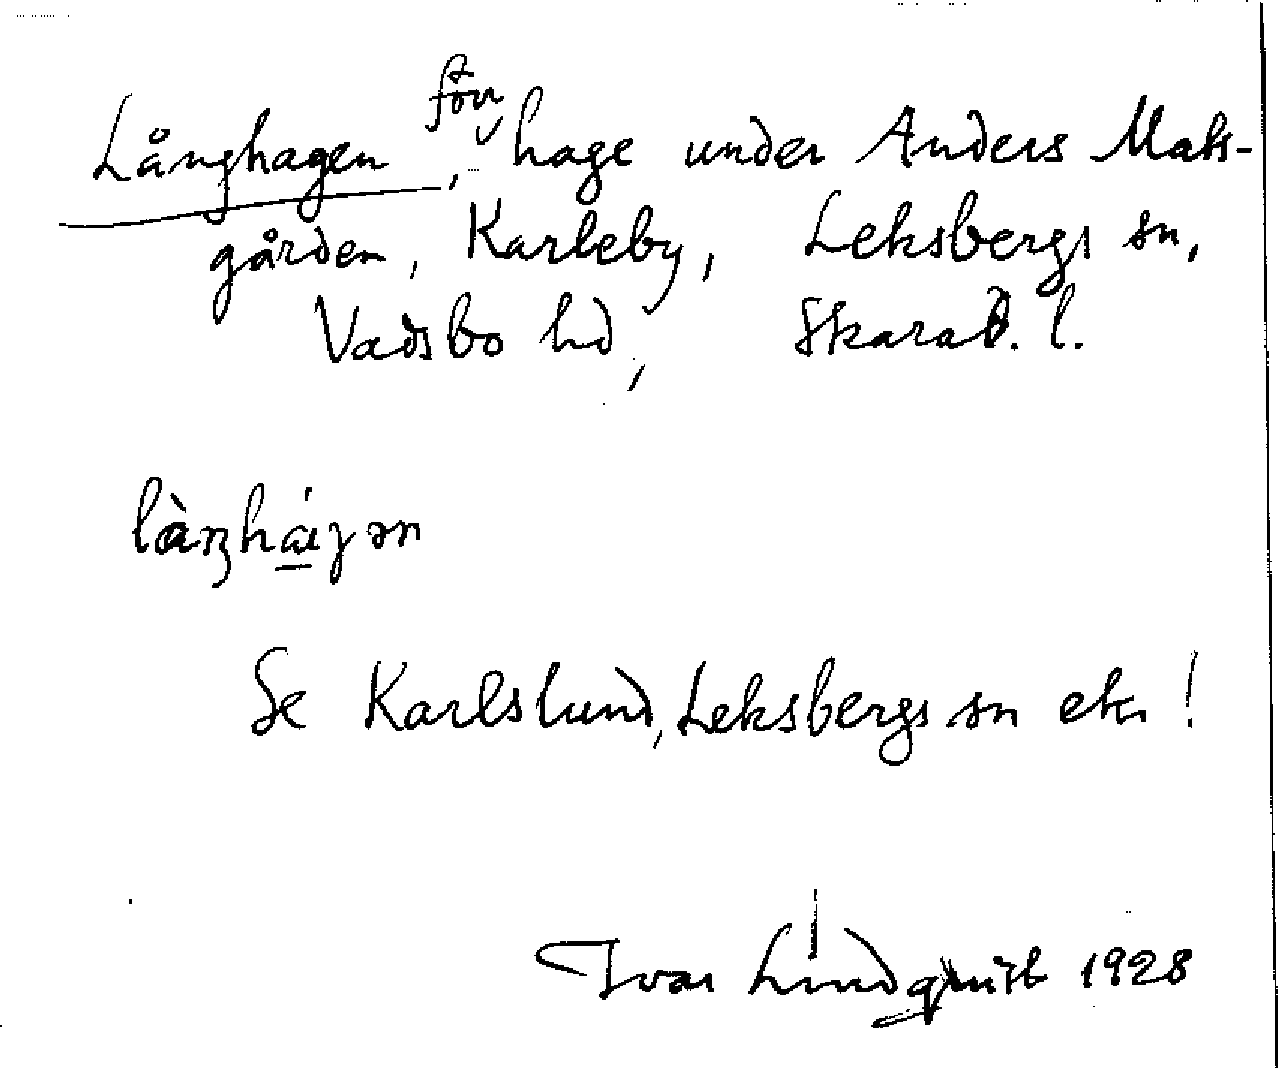 Långhagen, förr hage under Anders Mats-
gården, Karleby, Leksbergs sn,
Vadsbo hd, Skarab. l.
làŋhá̱ɡən
Se Karlslund, Leksbergs sn etc !
Ivar Lindquist 1928